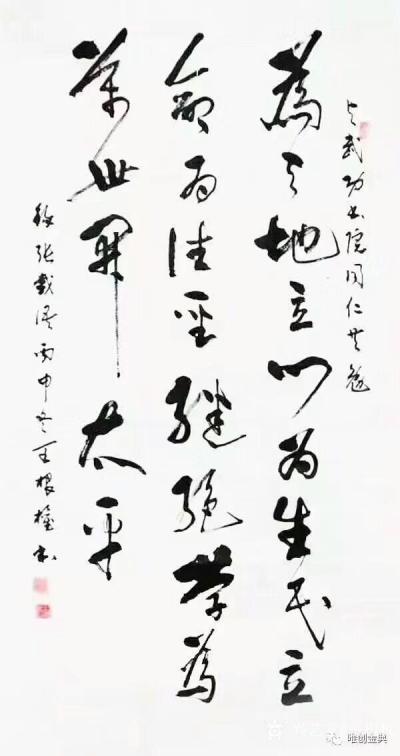 与武功书院同仁共勉
為天地立心为生民立
命为往聖繼絕學為
萬世開太平
錄張載語丙申冬王根權书
唯创金典